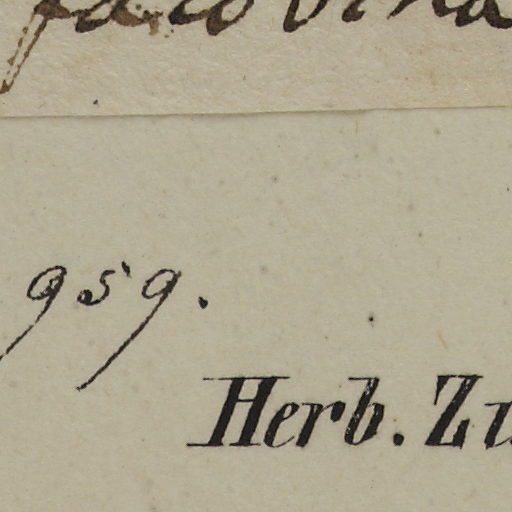 959.
Herb. Zu